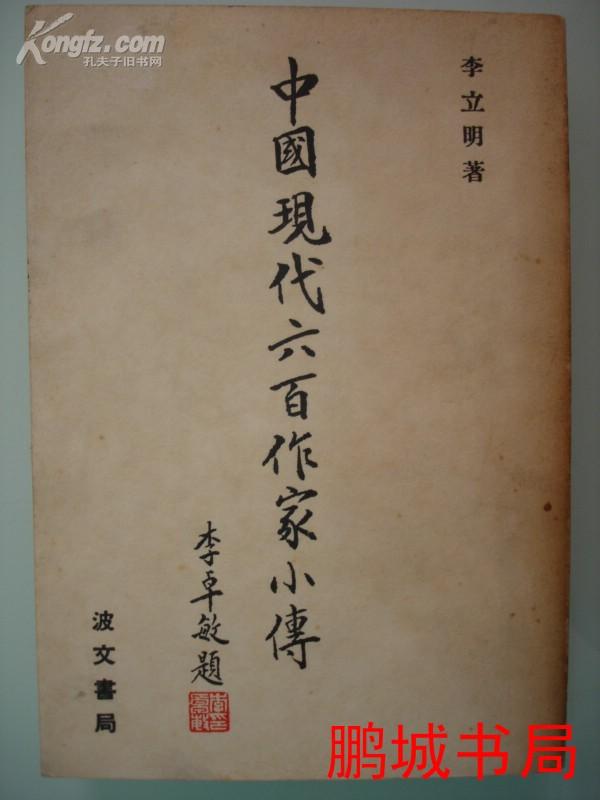 Kongfz.com
孔夫子旧书网
李立明著
中國現代六百作家小傳
李卓敏題
波文書局
鹏城书局